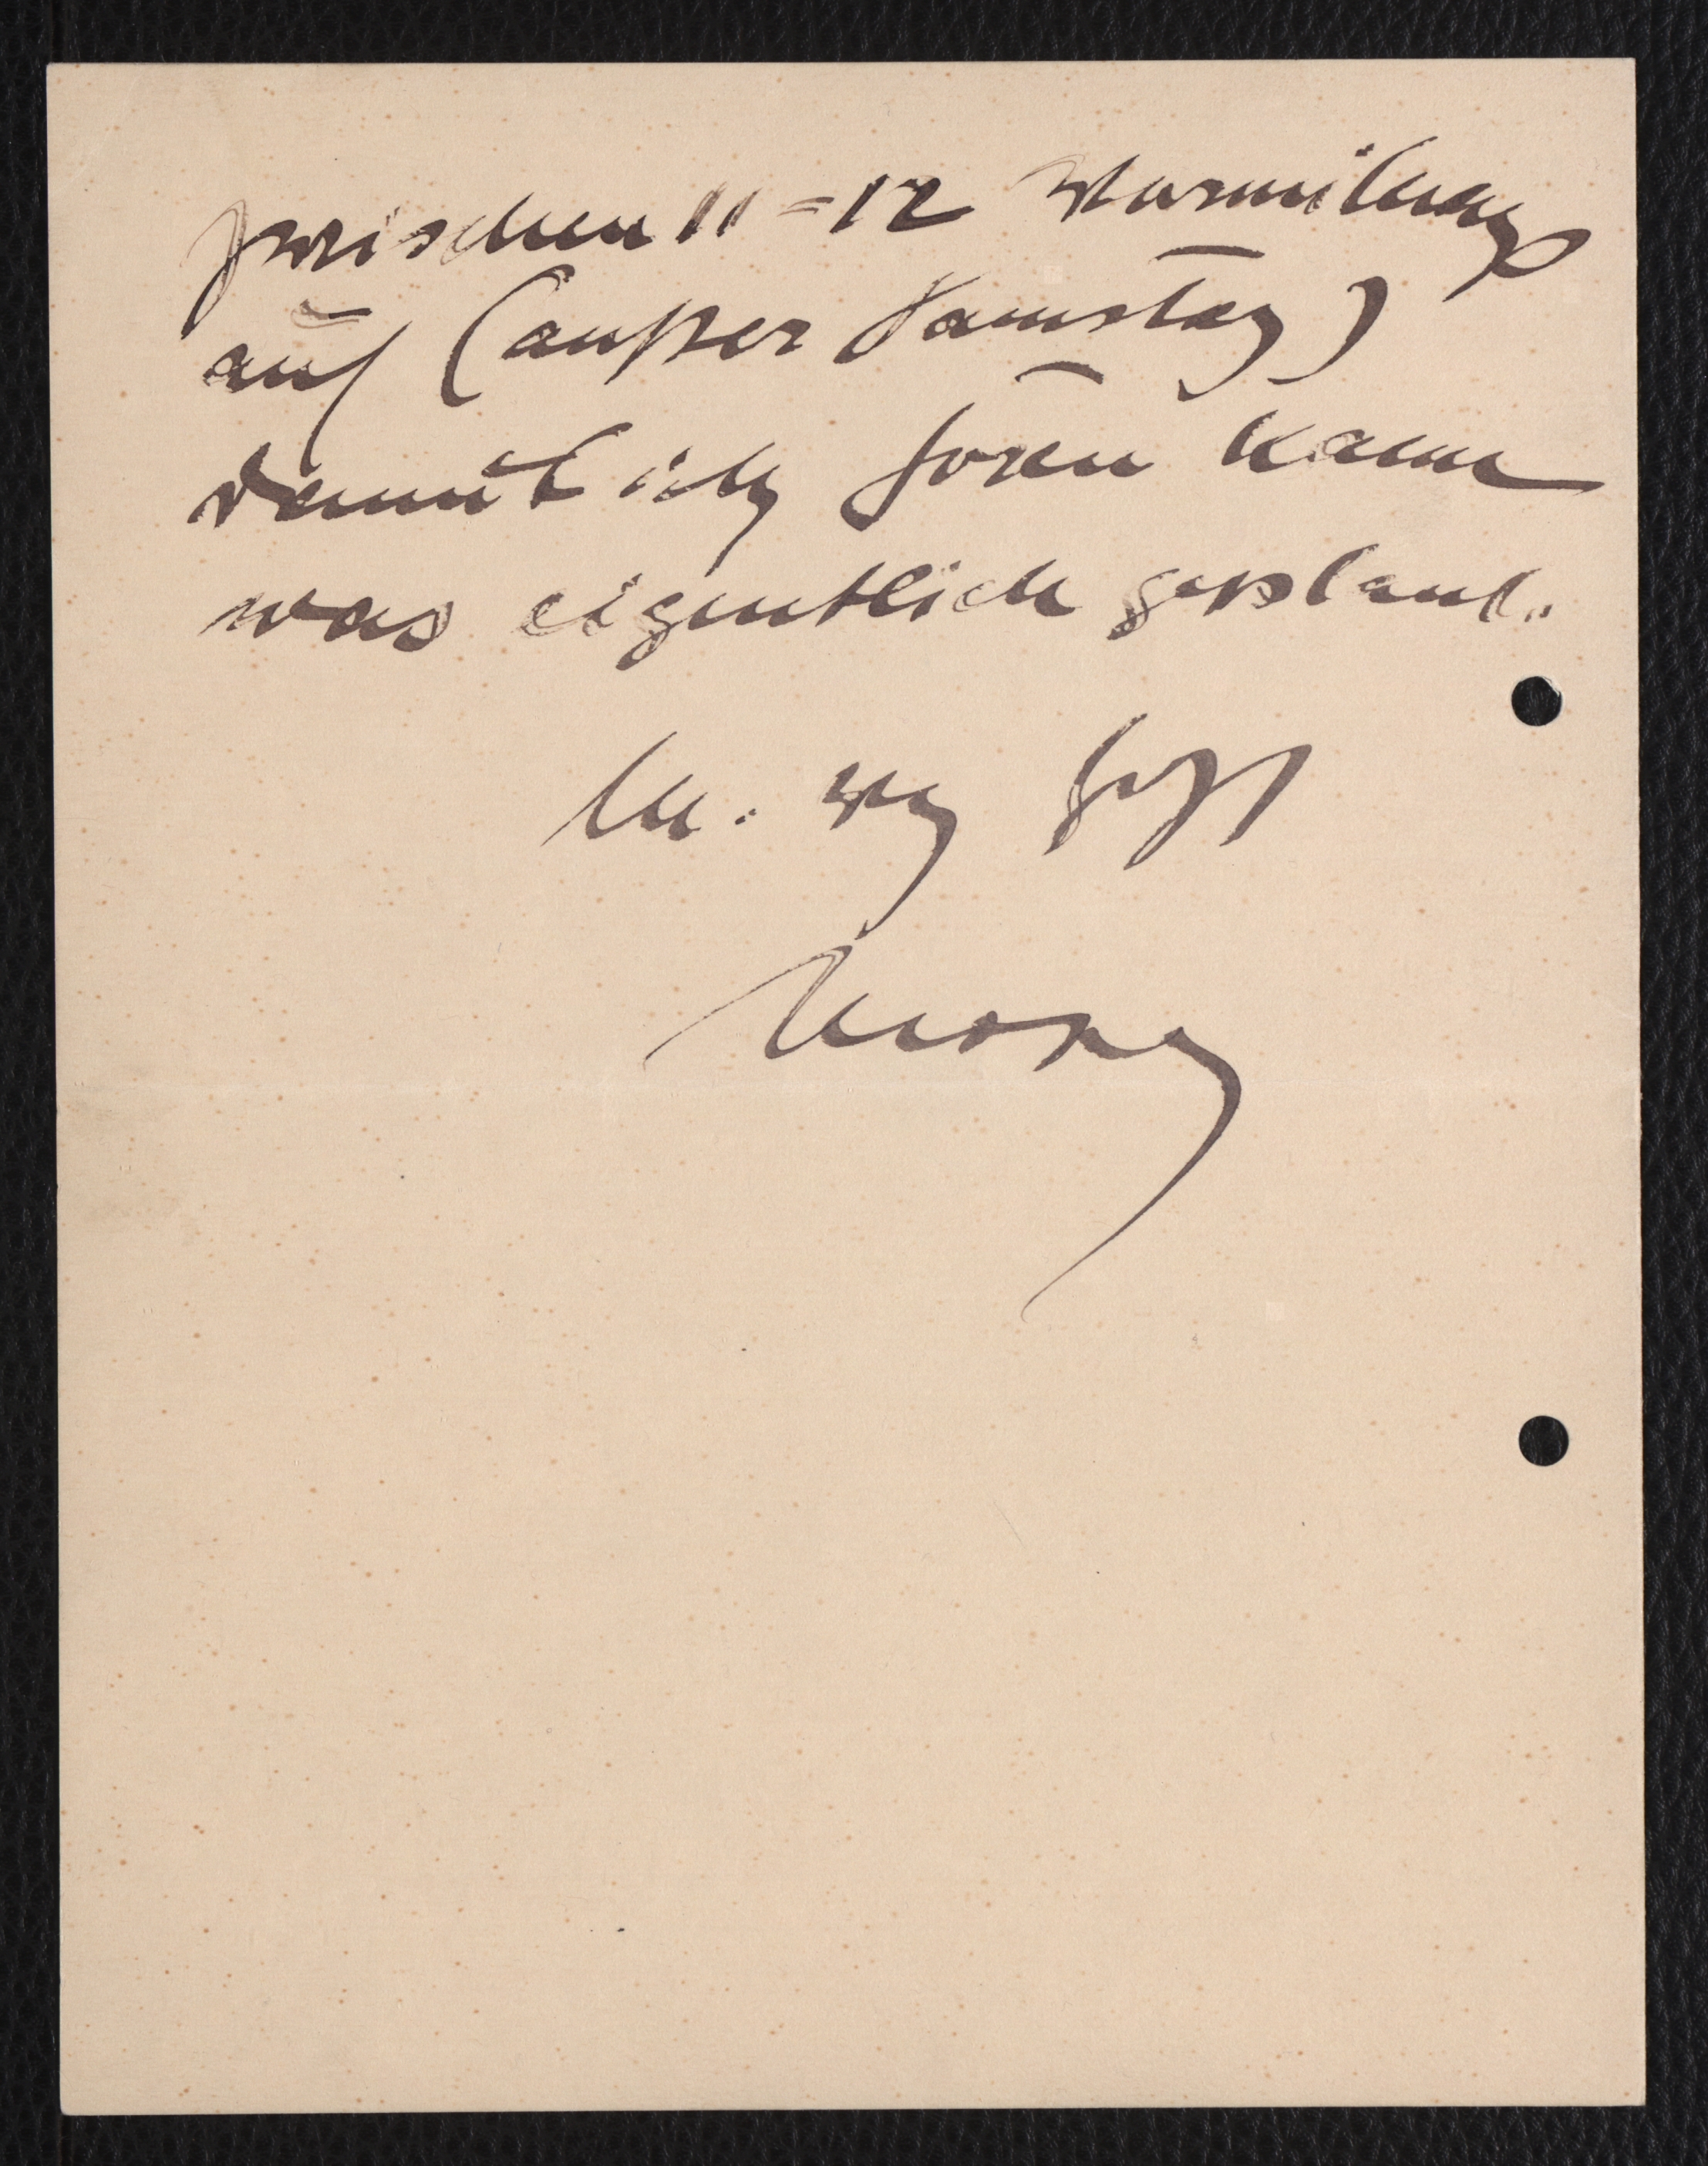 zwischen 11-12 Vormittags
auf (außer Samstag)
damit ich hören kann
was eigentlich geplant.